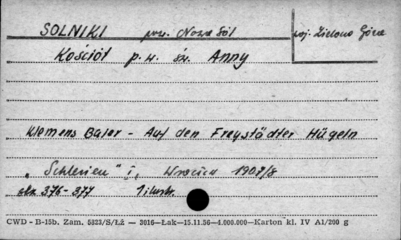 SOLNIKI pow. Nowa Sól woj. Zielona Góra
Kościół p.w. św. Anny
Klemens Baier - Auf den Freystädter Hügeln
„Schlesien" I, Wrocław 1907/8
str. 376-377 1 ilustr.
CWD - B-15b, Zam. 5823/S/Łż — 3016—Łak—15.11.56—4.000.000—Karton kl. IV A1/200 g